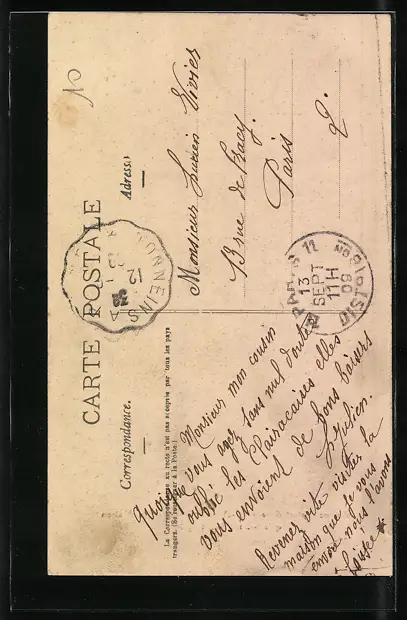 CARTE POSTALE
Correspondance.
Adresse
La Correspondance au recto n'est pas acceptée par tous les pays
trangers. (Se renseigner à la Poste.)
Monsieur Lucien Vivies
13 rue de Bracy.
Paris
2.
TONNEINS
12
PARIS 11
13
SEPT
11H
09
DISTRIBON
10
Monsieur mon cousin
vous avez sans nul doute
oublié les Clairacaises elles
vous envoient de bons baisers
Julien.
Revenez vite visiter la
maison que je vous
envoie nous l'avons